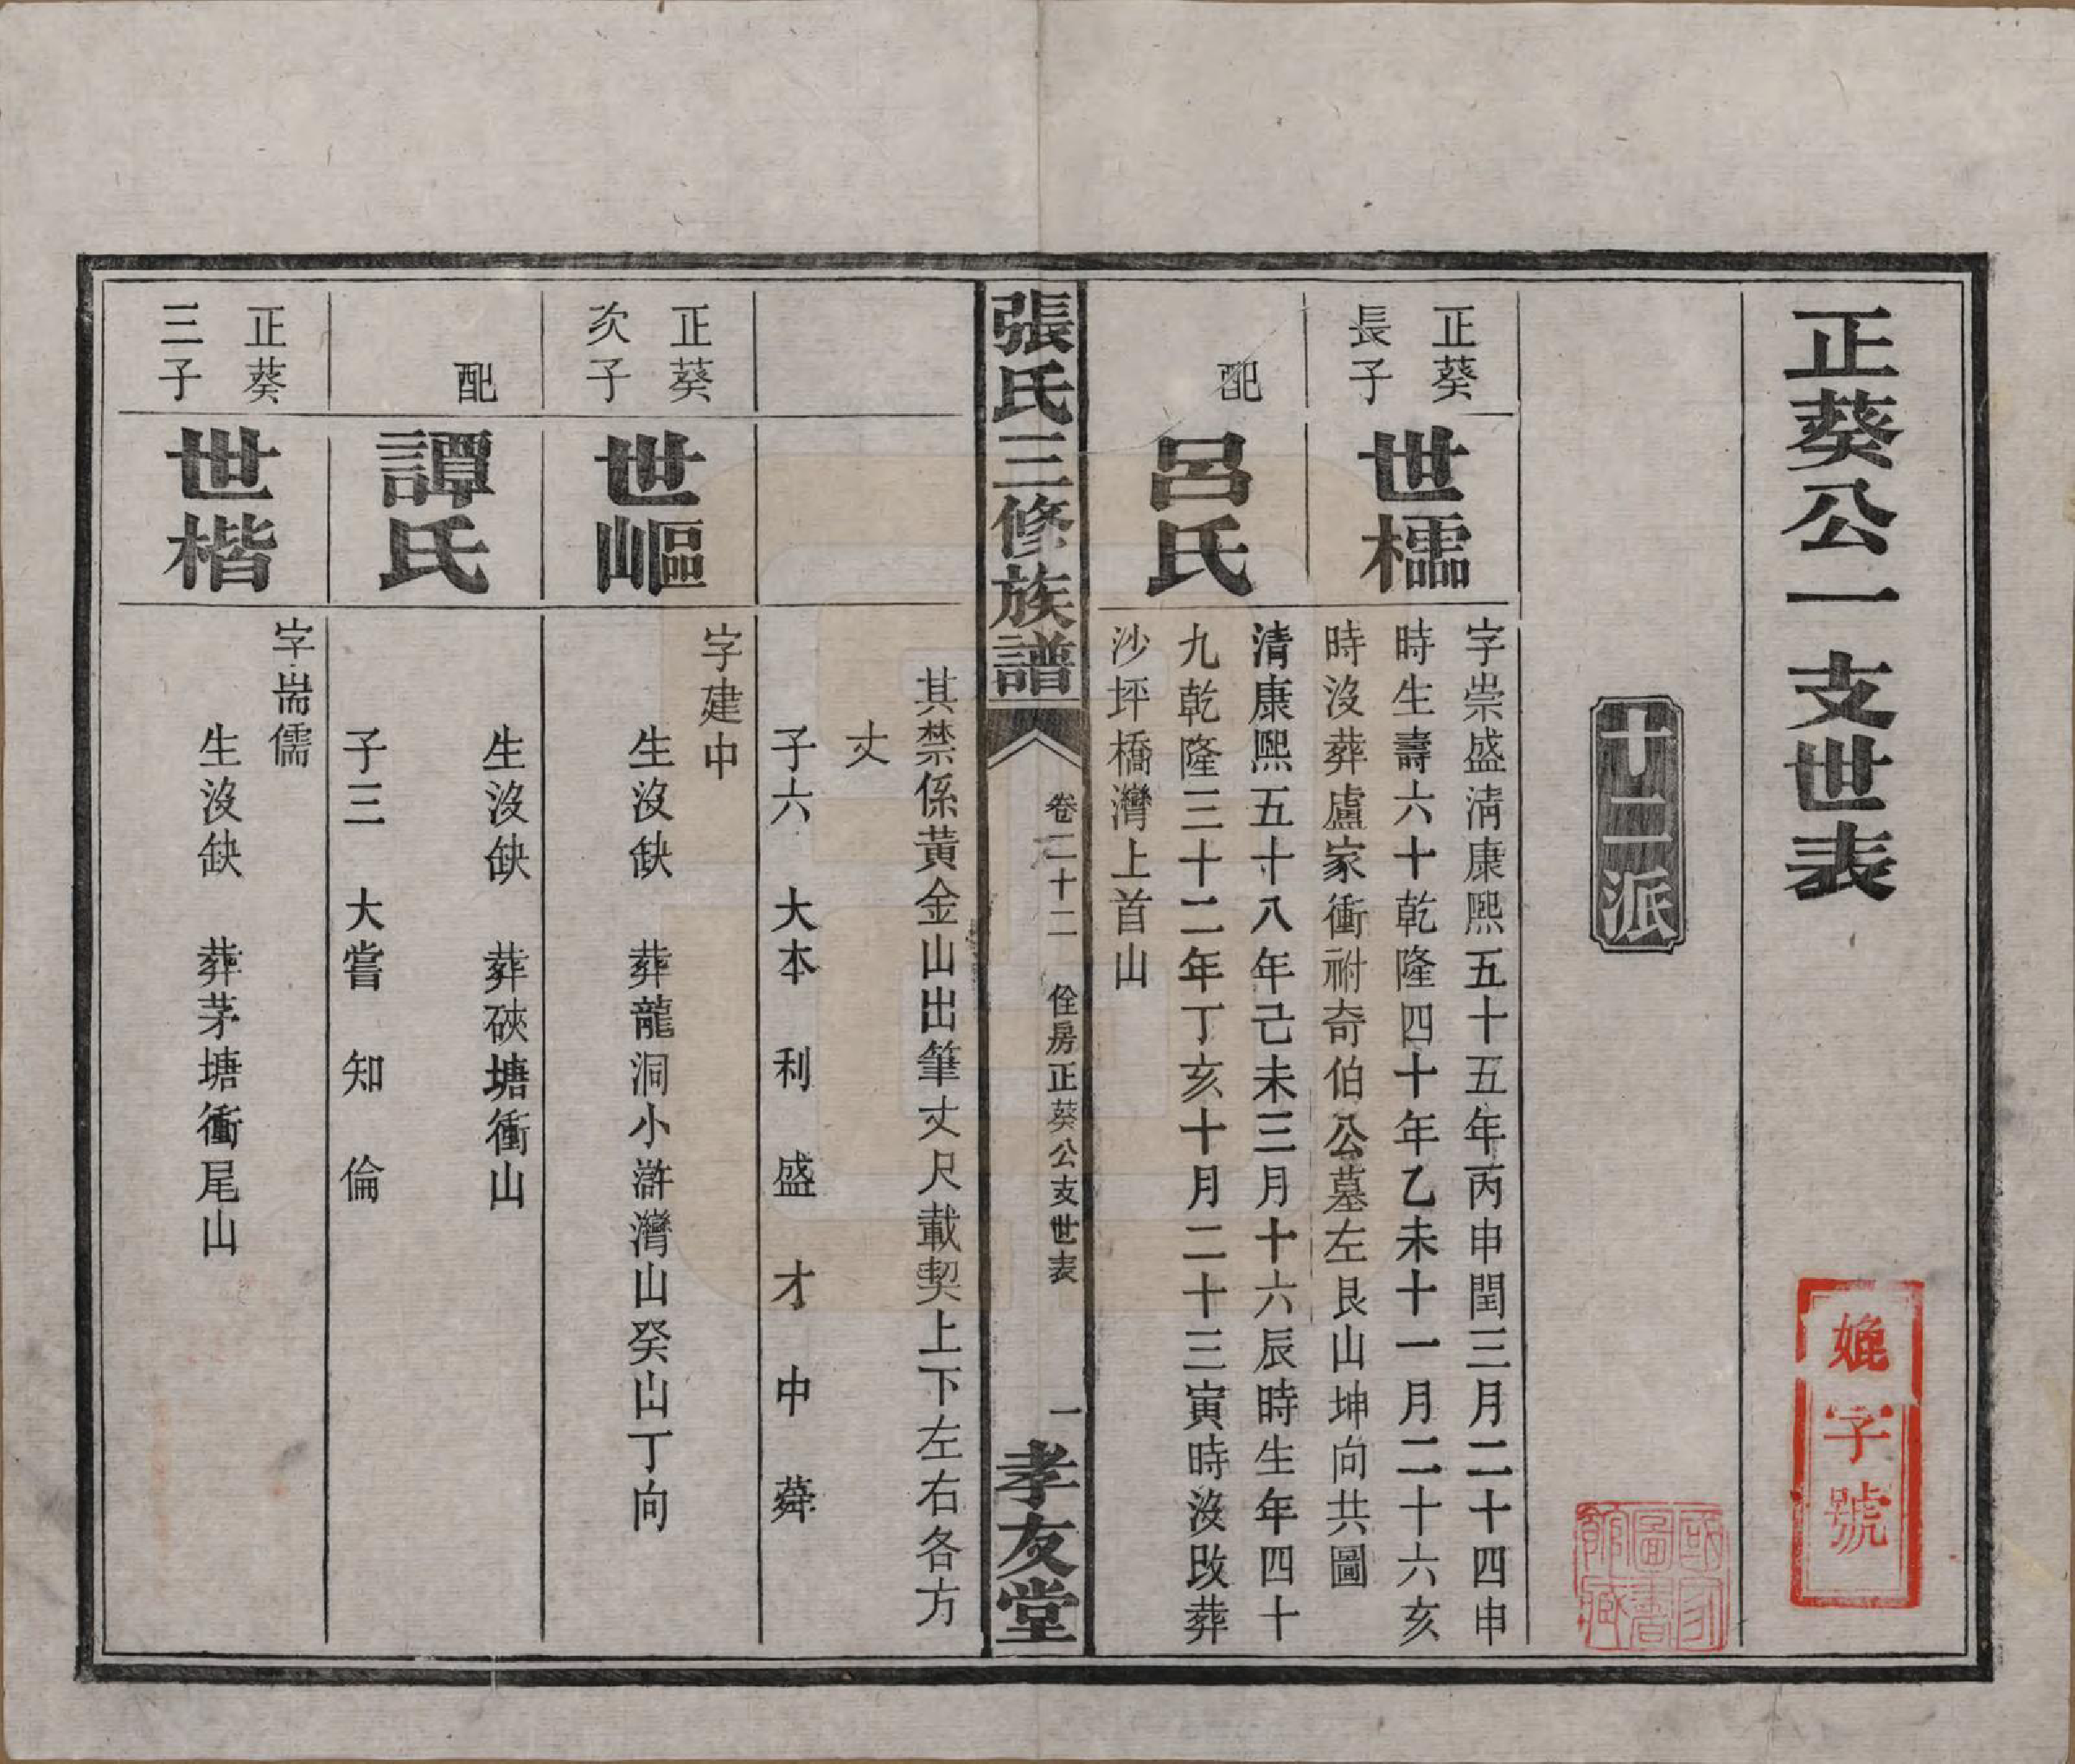 正葵公一支世表
字號
國家圖書館藏
十二派
正葵
長子
世檽
字崇盛清康熙五十五年丙申閏三月二十四申
時生壽六十乾隆四十年乙未十一月二十六亥
時沒葬盧家衝祔奇伯公墓左艮山坤向共圖
配
呂氏
清康熙五十八年己未三月十六辰時生年四十
九乾隆三十二年丁亥十月二十三寅時沒改葬
沙坪橋灣上首山
張氏三修族譜
卷二十二
佺房正葵公支世表
一
孝友堂
其禁係黃金山出筆丈尺載契上下左右各方
丈
子六 大本 利 盛 才 中 薢
正葵
次子
世嶇
字建中
生沒缺 葬龍洞小滸灣山癸山丁向
配
譚氏
生沒缺 葬硤塘衝山
子三 大嘗 知 倫
正葵
三子
世楷
字崙儒
生沒缺 葬茅塘衝尾山